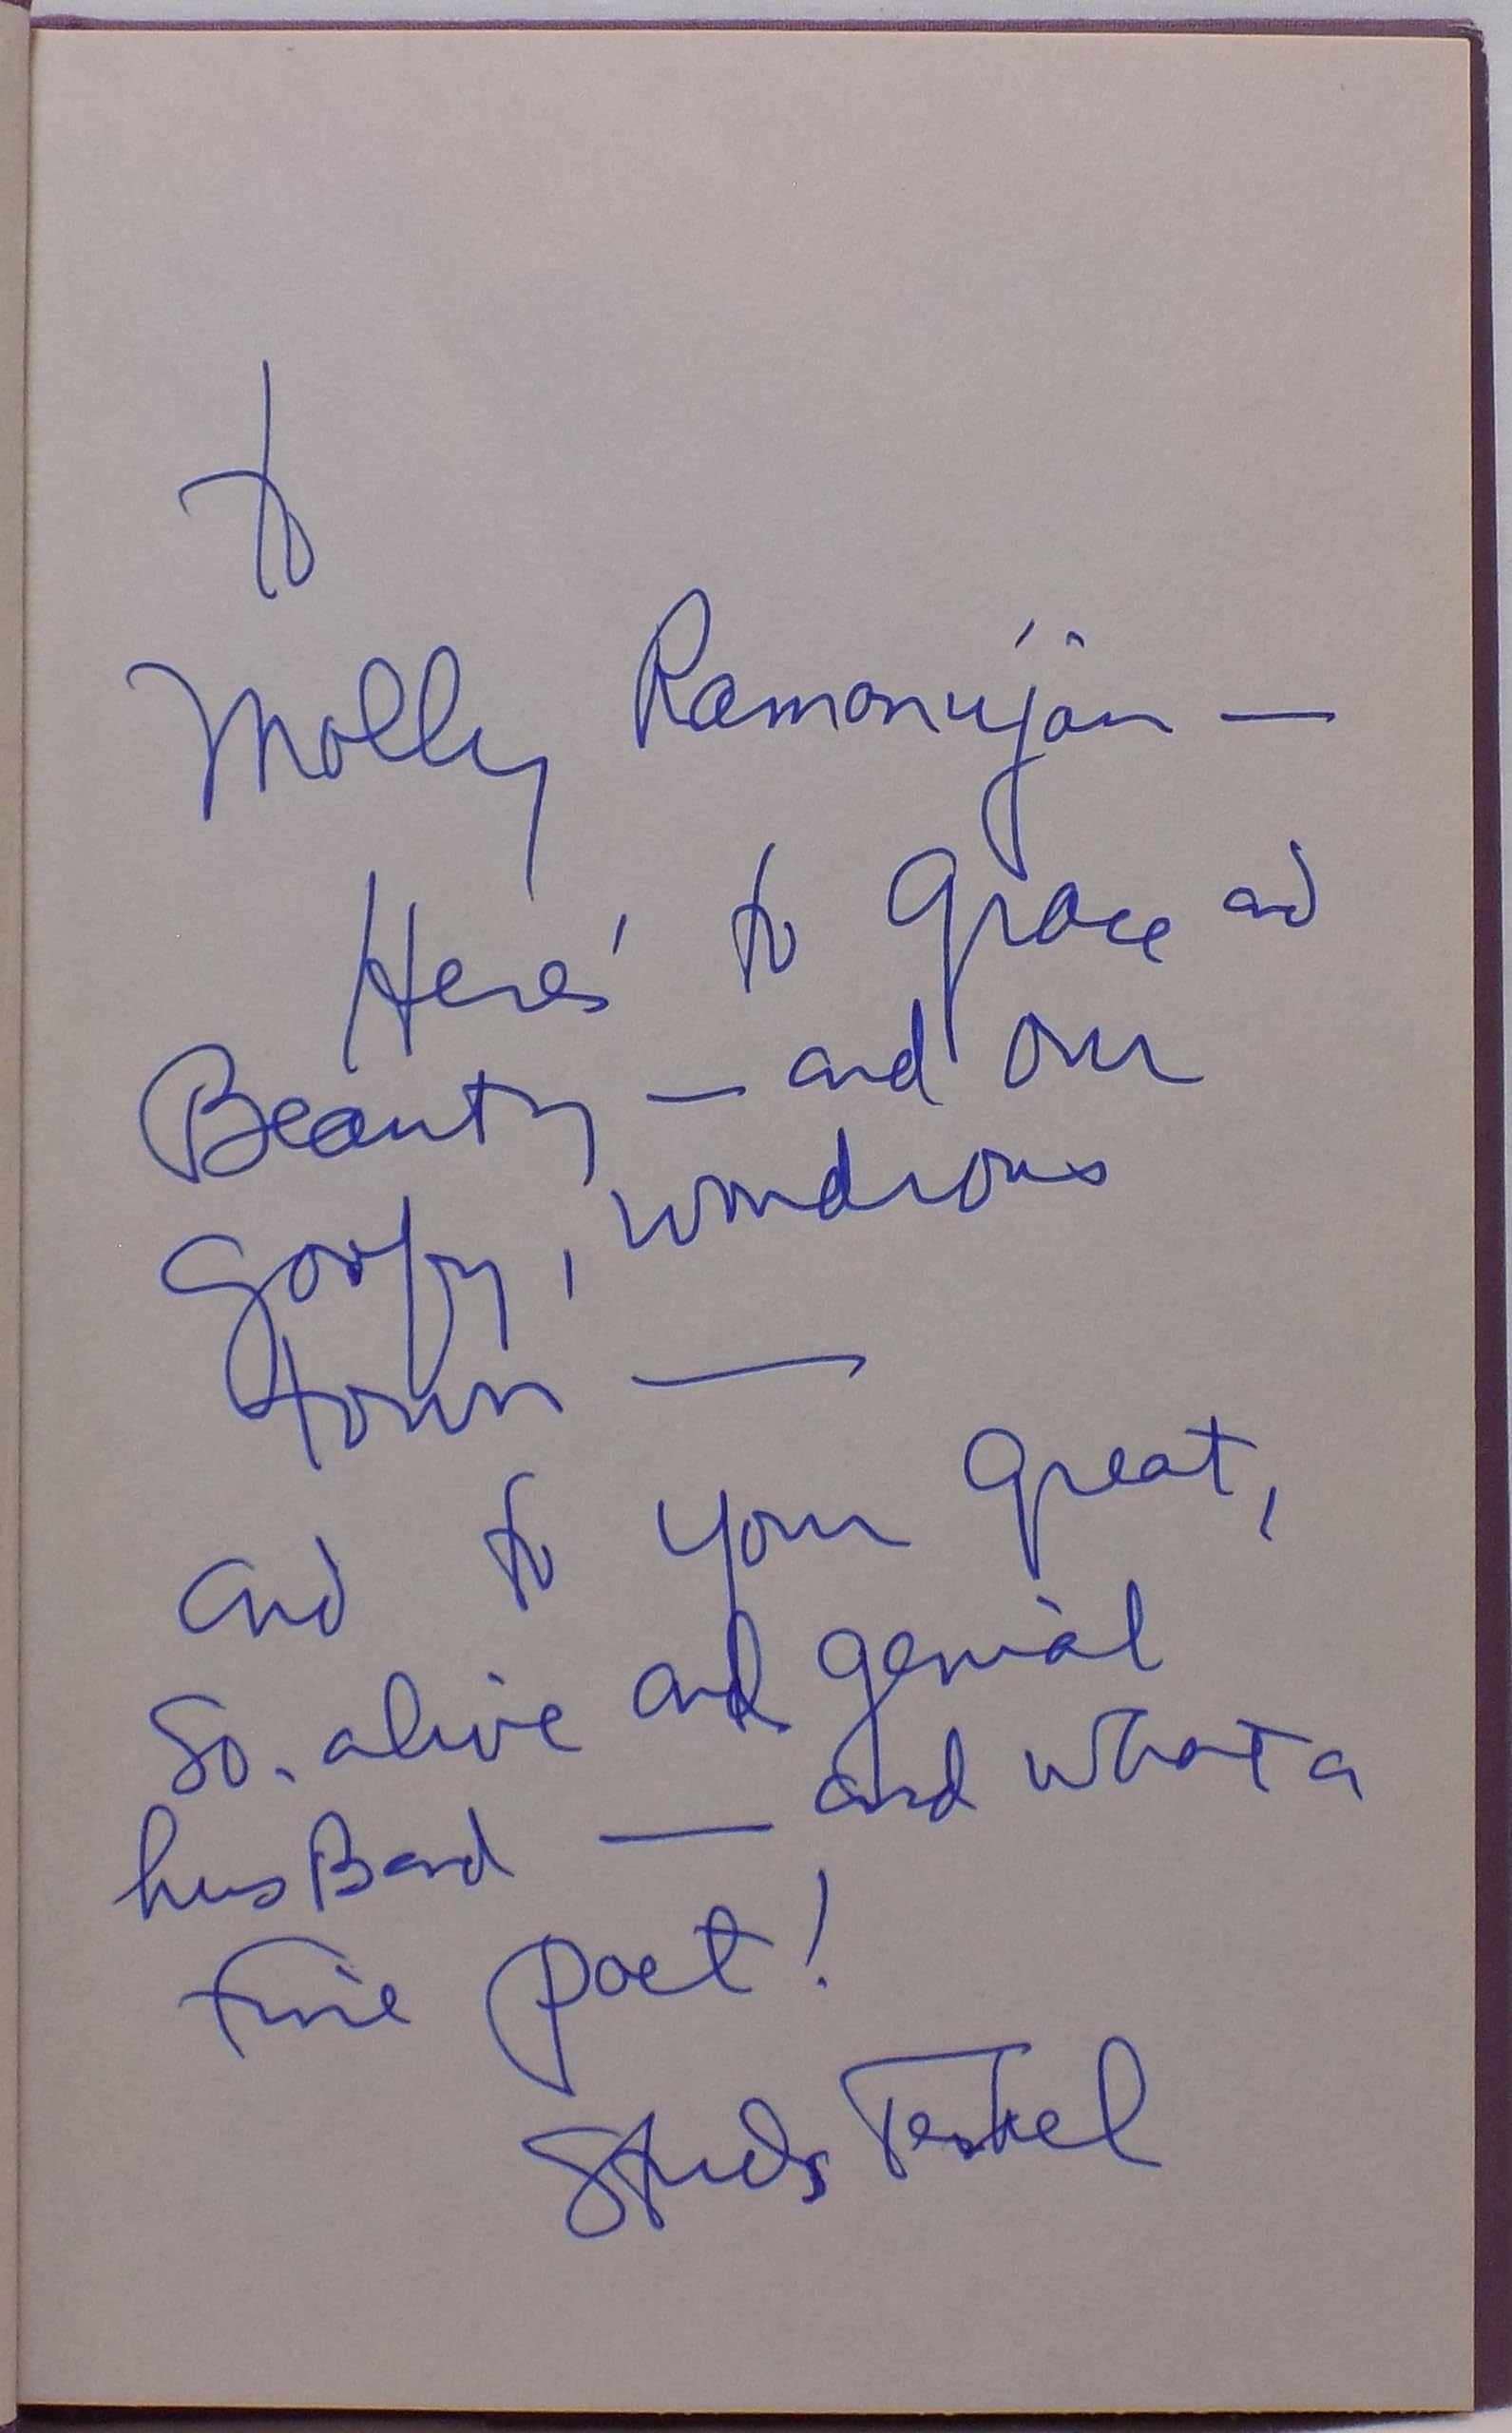 To
Molly Ramonujan —
Here's to Grace and
Beauty — and our
goofy, wondrous
town —
and to your great,
so alive and genial
husBand — and what a
fine poet!
Studs Terkel